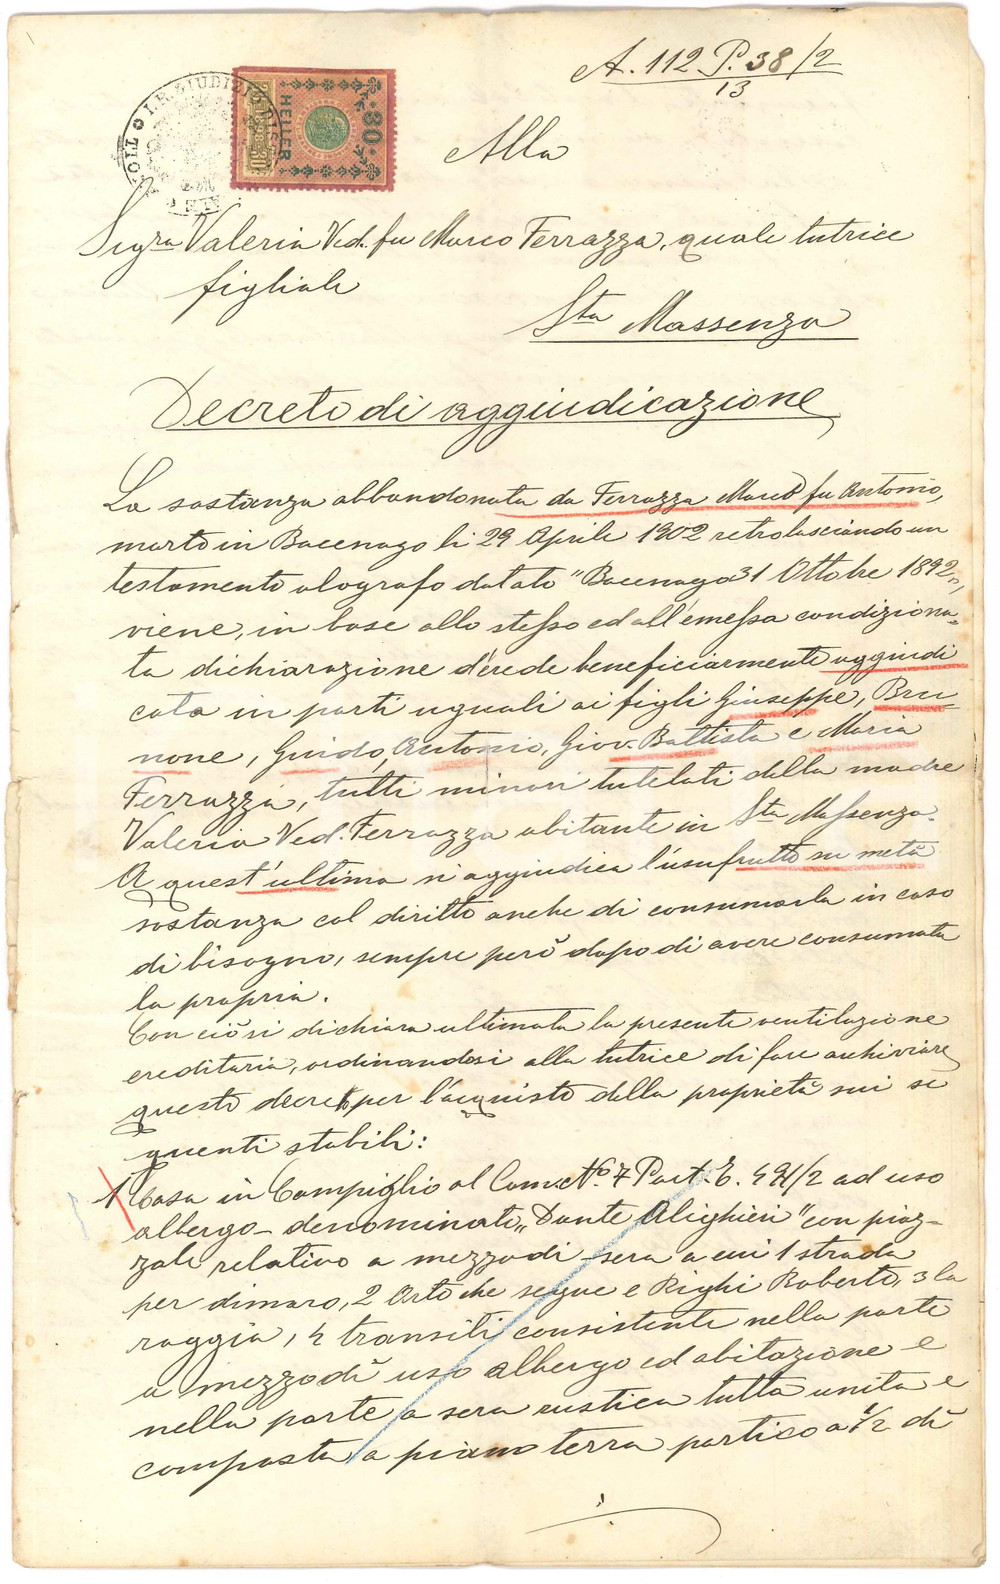 A. 112 P. 38/2
13
I. R. GIUDIZIO DIST
80
HELLER
Alla
Sigra Valeria Ved. fu Marco Ferrazza, quale tutrice
figliale
Sta Massenza
Decreto di aggiudicazione
La sostanza abbandonata da Ferrazza Marco fu Antonio,
morto in Bacenago li 29 Aprile 1902 retrolasciando un
testamento olografo datato "Bacenago 31 Ottobre 1892",
viene, in base allo stesso ed all'emessa condiziona-
ta dichiarazione d'erede beneficiarmente aggiudi
cata in parti uguali ai figli Giuseppe, Bru-
none, Guido, Antonio, Giov. Battista e Maria
Ferrazza, tutti minori tutelati della madre
Valeria Ved. Ferrazza abitante in Sta Massenza.
A quest'ultima si aggiudica l'usufrutto su metà
sostanza col diritto anche di consumarla in caso
di bisogno, sempre però dopo di avere consumata
la propria.
Con ciò si dichiara ultimata la presente ventilazione
ereditaria, ordinandosi alla tutrice di fare archiviare
questo decreto per l'acquisto della proprietà sui se
guenti stabili:
1 Casa in Campiglio al Com. No. 7 Part. E. 491/2 ad uso
albergo - denominato „Dante Alighieri" con piaz-
zale relativo a mezzodi - sera a cui 1 strada
per dimaro, 2 Orto che segue e Righi Roberto, 3 la
roggia, 4 transiti consistente nella parte
a mezzodì uso albergo ed abitazione e
nella parte a sera rustica tutta unita e
composta a piano terra portico a 1/2 di